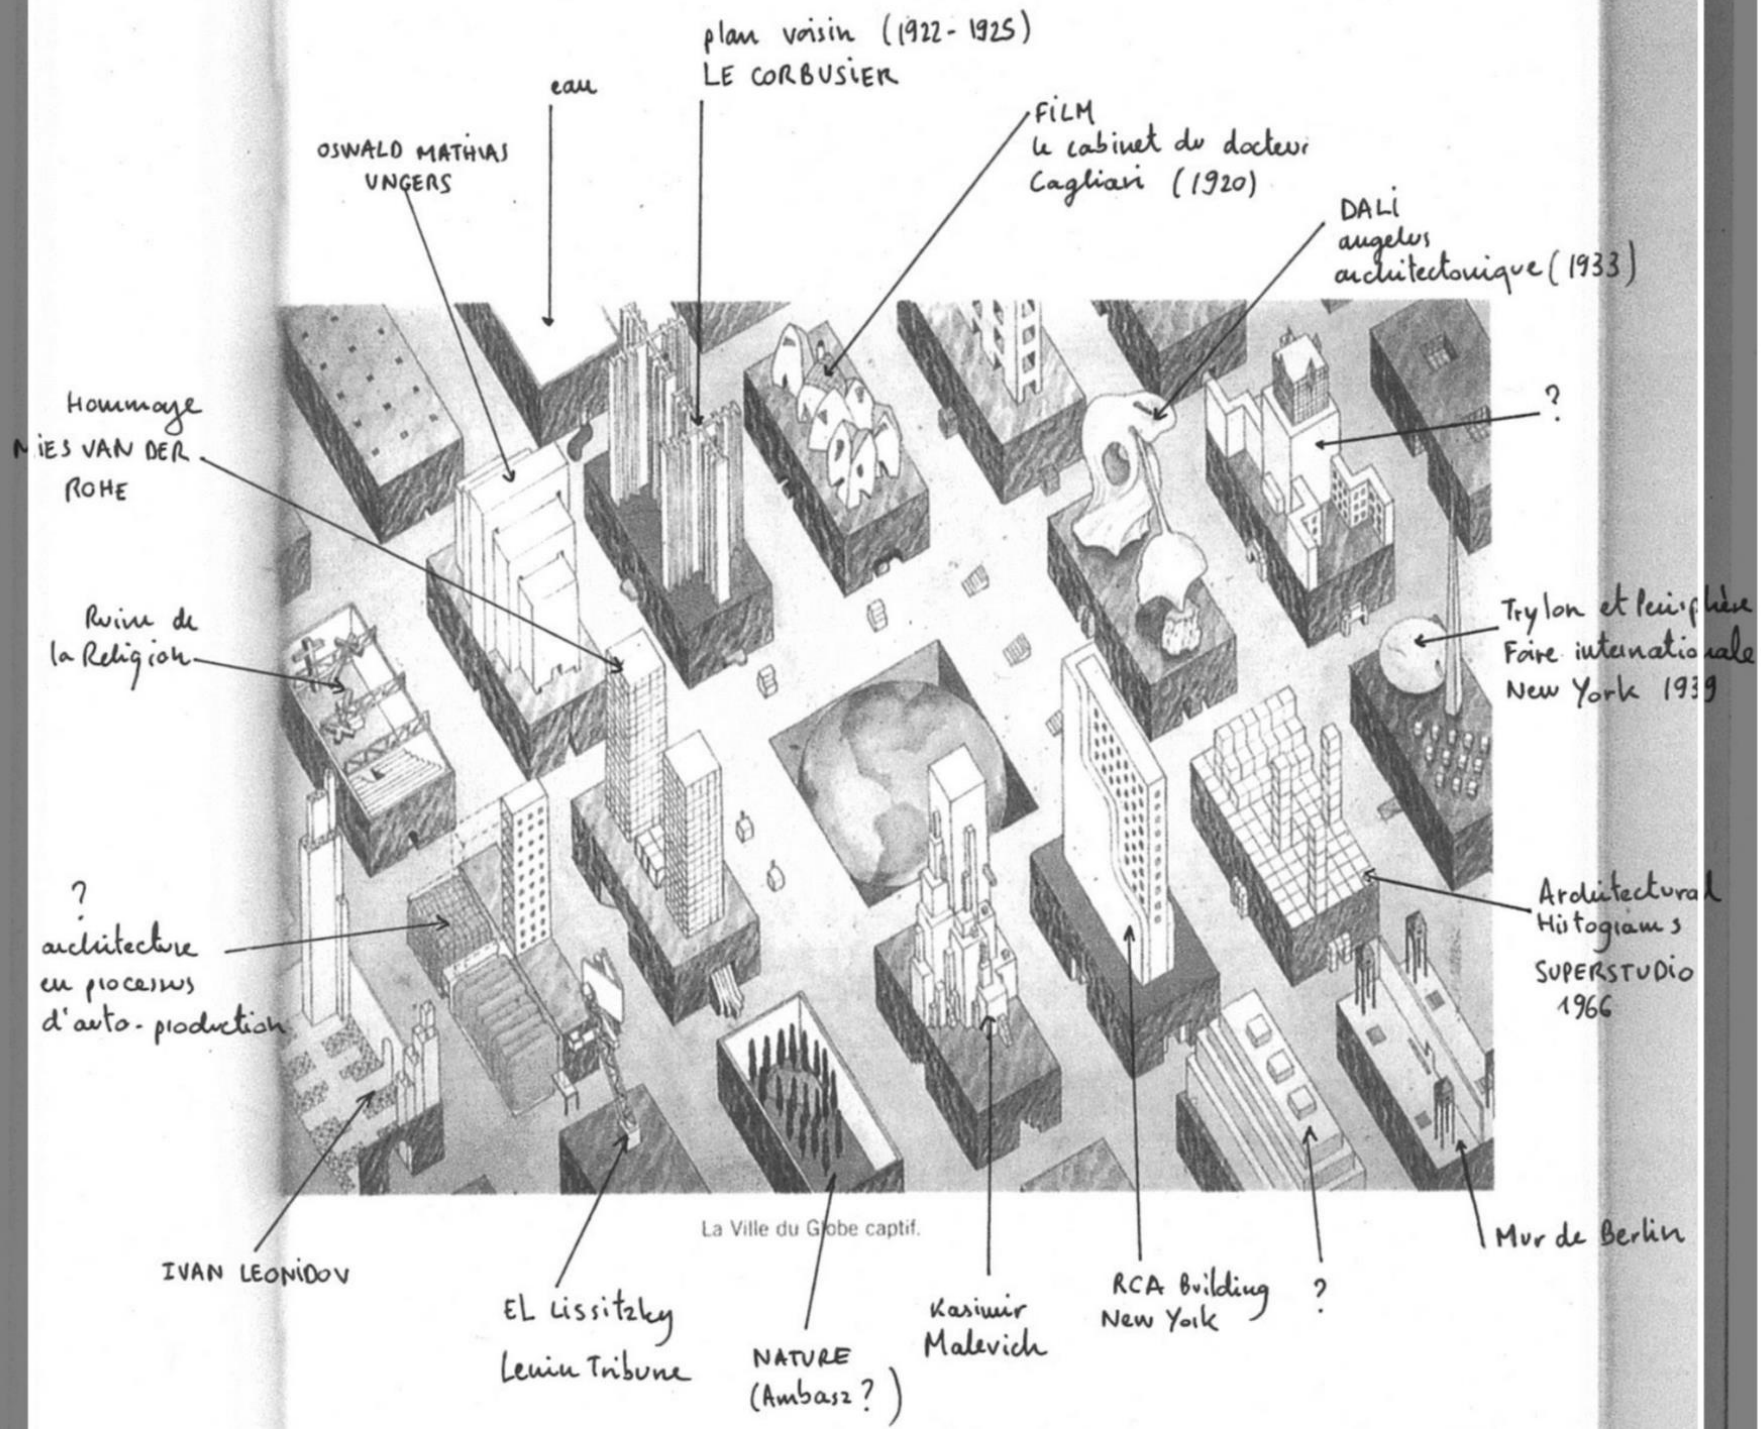 plan voisin (1922-1925)
LE CORBUSIER
eau
FILM
le cabinet du docteur
Cagliari (1920)
OSWALD MATHIAS
UNGERS
DALI
angelus
architectonique (1933)
Hommage
MIES VAN DER
ROHE
?
Ruine de
la Religion
Trylon et Perisphère
Foire internationale
New York 1939
?
architecture
en processus
d'auto-production
Architectural
Histograms
SUPERSTUDIO
1966
La Ville du Globe captif.
Mur de Berlin
IVAN LEONIDOV
EL Lissitzky
Lenin Tribune
NATURE
(Ambasz ?)
Kasimir
Malevich
RCA Building
New York
?